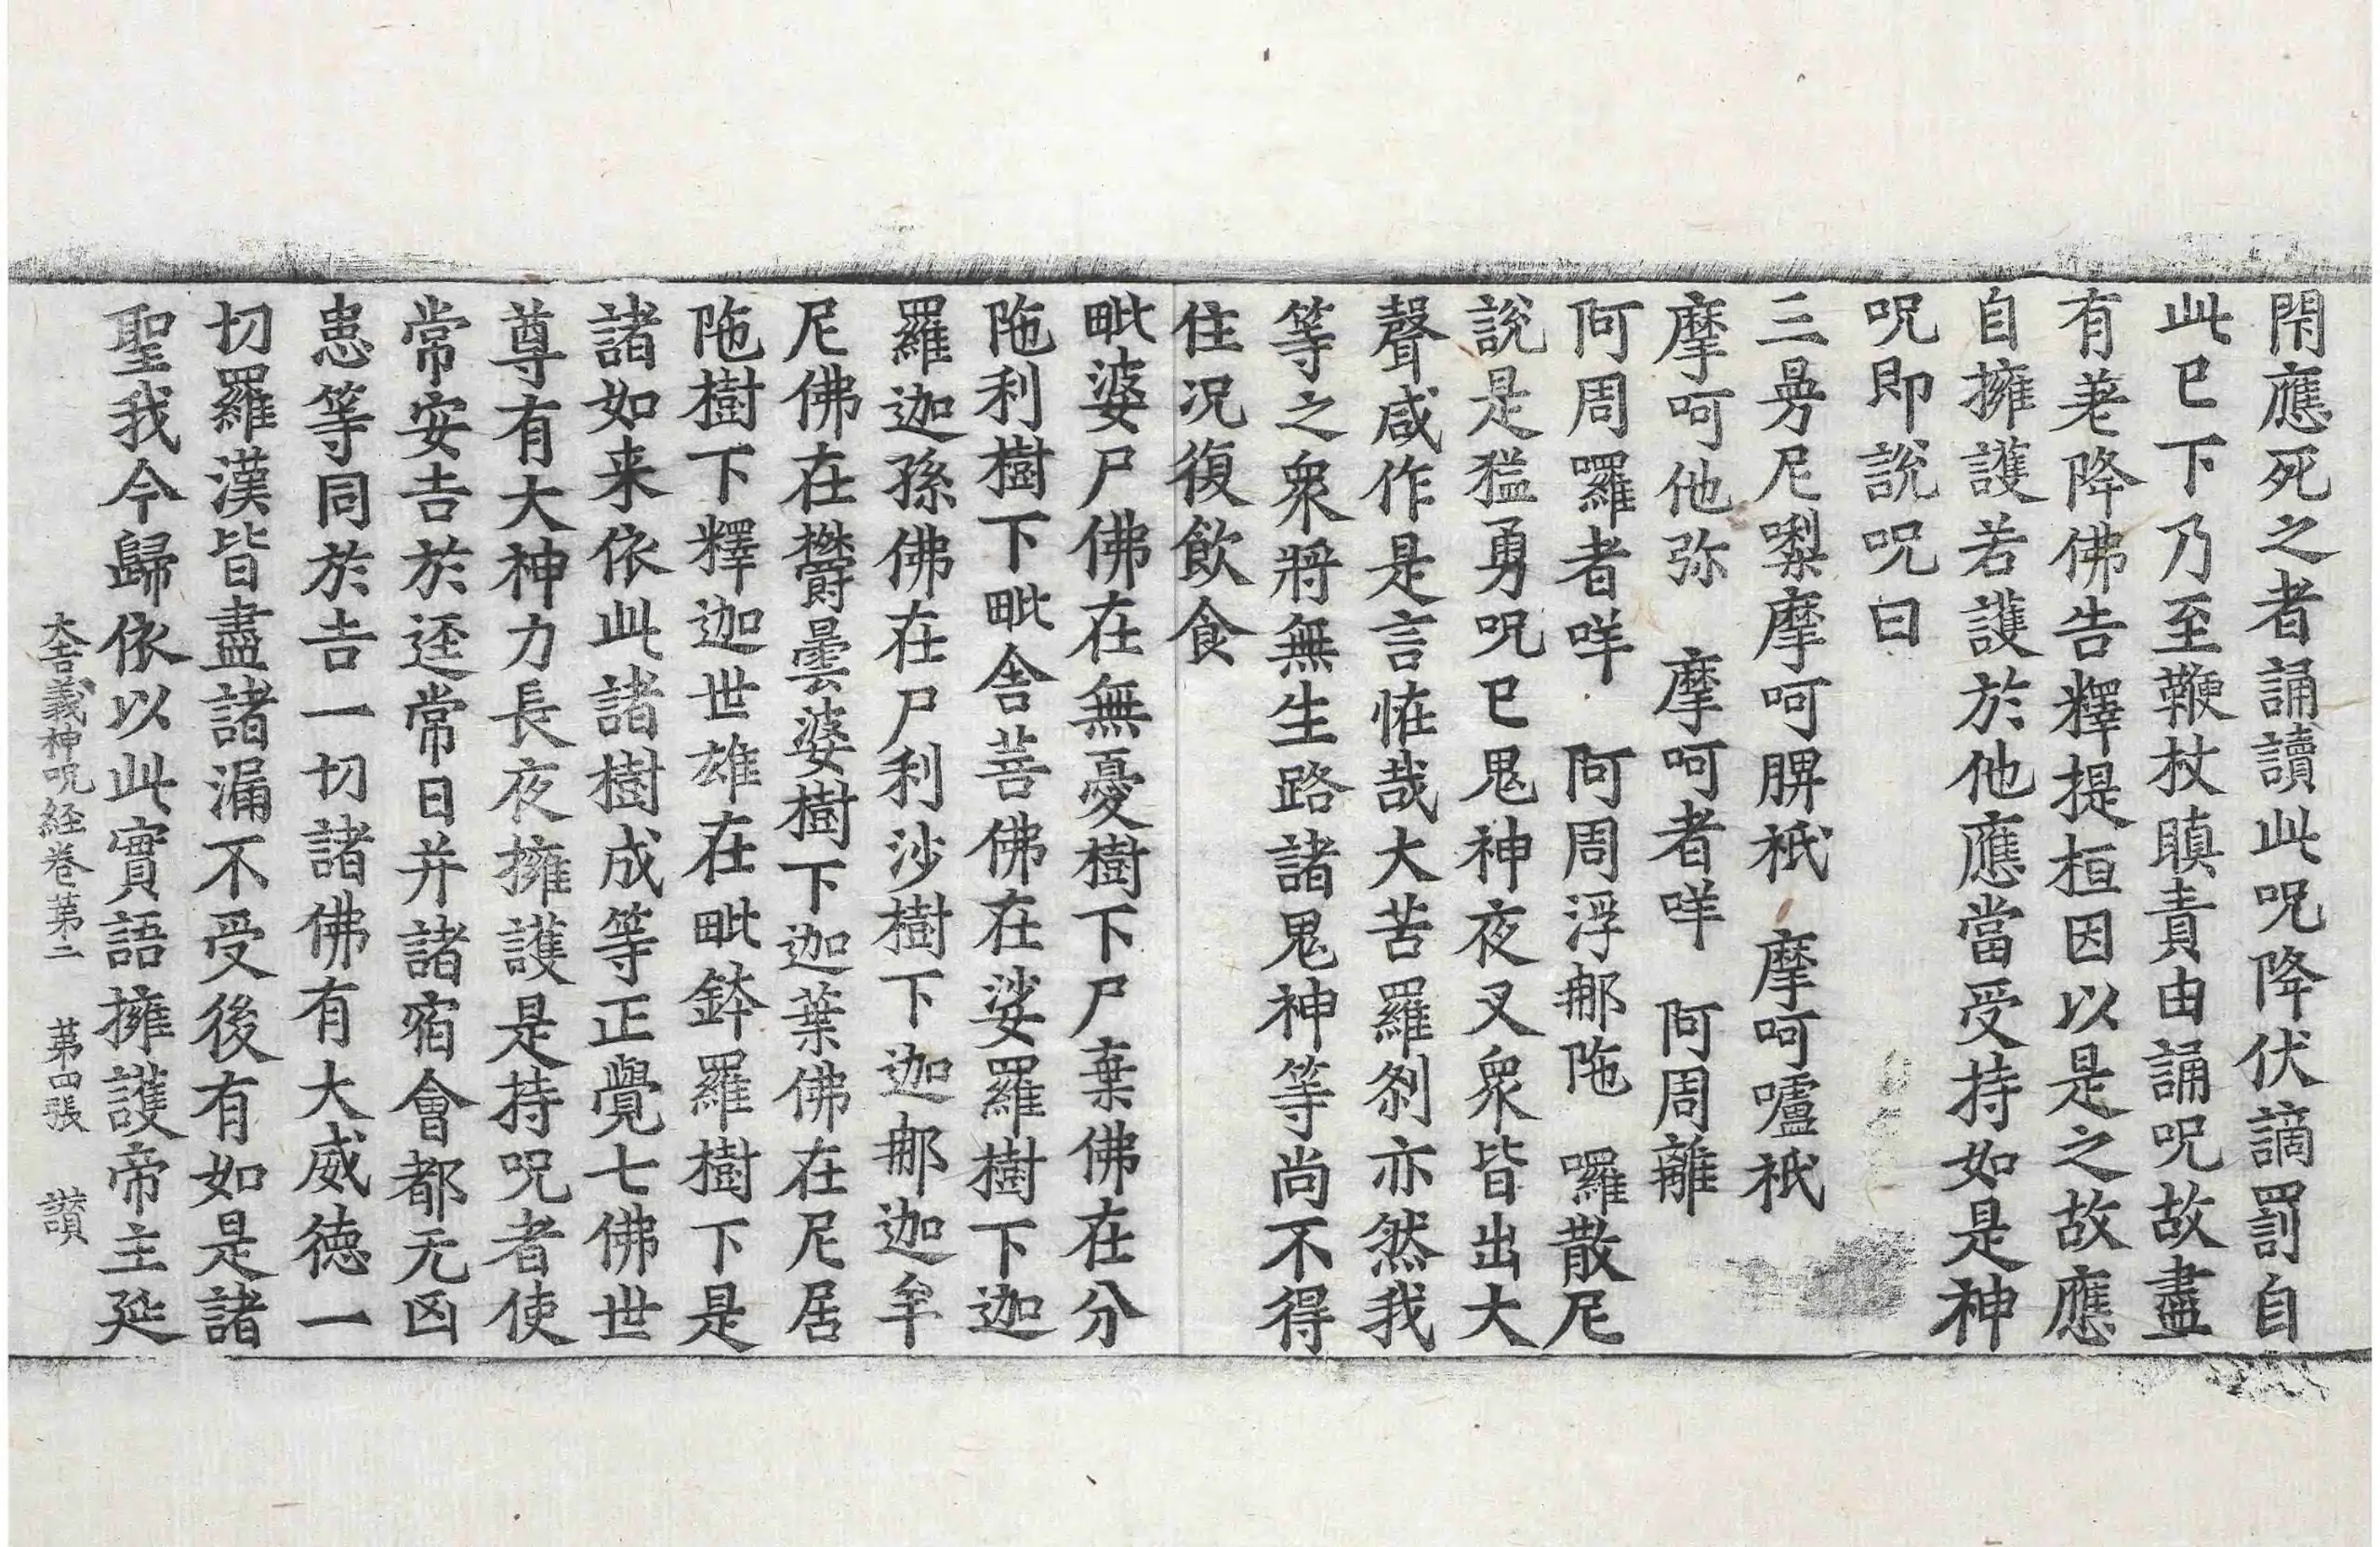 閇應死之者誦讀此呪降伏謫罰自
此已下乃至鞭杖瞋責由誦呪故盡
有荖降佛告釋提桓因以是之故應
自擁護若護於他應當受持如是神
呪即說呪曰
三昜尼㗚摩呵脾袟 摩呵嚧袟
摩呵他弥 摩呵者咩 阿周離
阿周囉者咩 阿周浮郍陁 囉散尼
說是猛勇呪已鬼神夜叉衆皆出大
聲咸作是言恠哉大苦羅刹亦然我
等之衆將無生路諸鬼神等尚不得
住况復飲食
毗婆尸佛在無憂樹下尸棄佛在分
陁利樹下毗舍菩佛在娑羅樹下迦
羅迦孫佛在尸利沙樹下迦郍迦牟
尼佛在欝曇婆樹下迦葉佛在尼居
陁樹下釋迦世雄在毗鉢羅樹下是
諸如来依此諸樹成等正覺七佛世
尊有大神力長夜擁護是持呪者使
常安吉於逕常日并諸宿會都无凶
患等同於吉一切諸佛有大威德一
切羅漢皆盡諸漏不受後有如是諸
聖我今歸依以此實語擁護帝主延
大吉義神呪経卷苐二 苐四張 讃